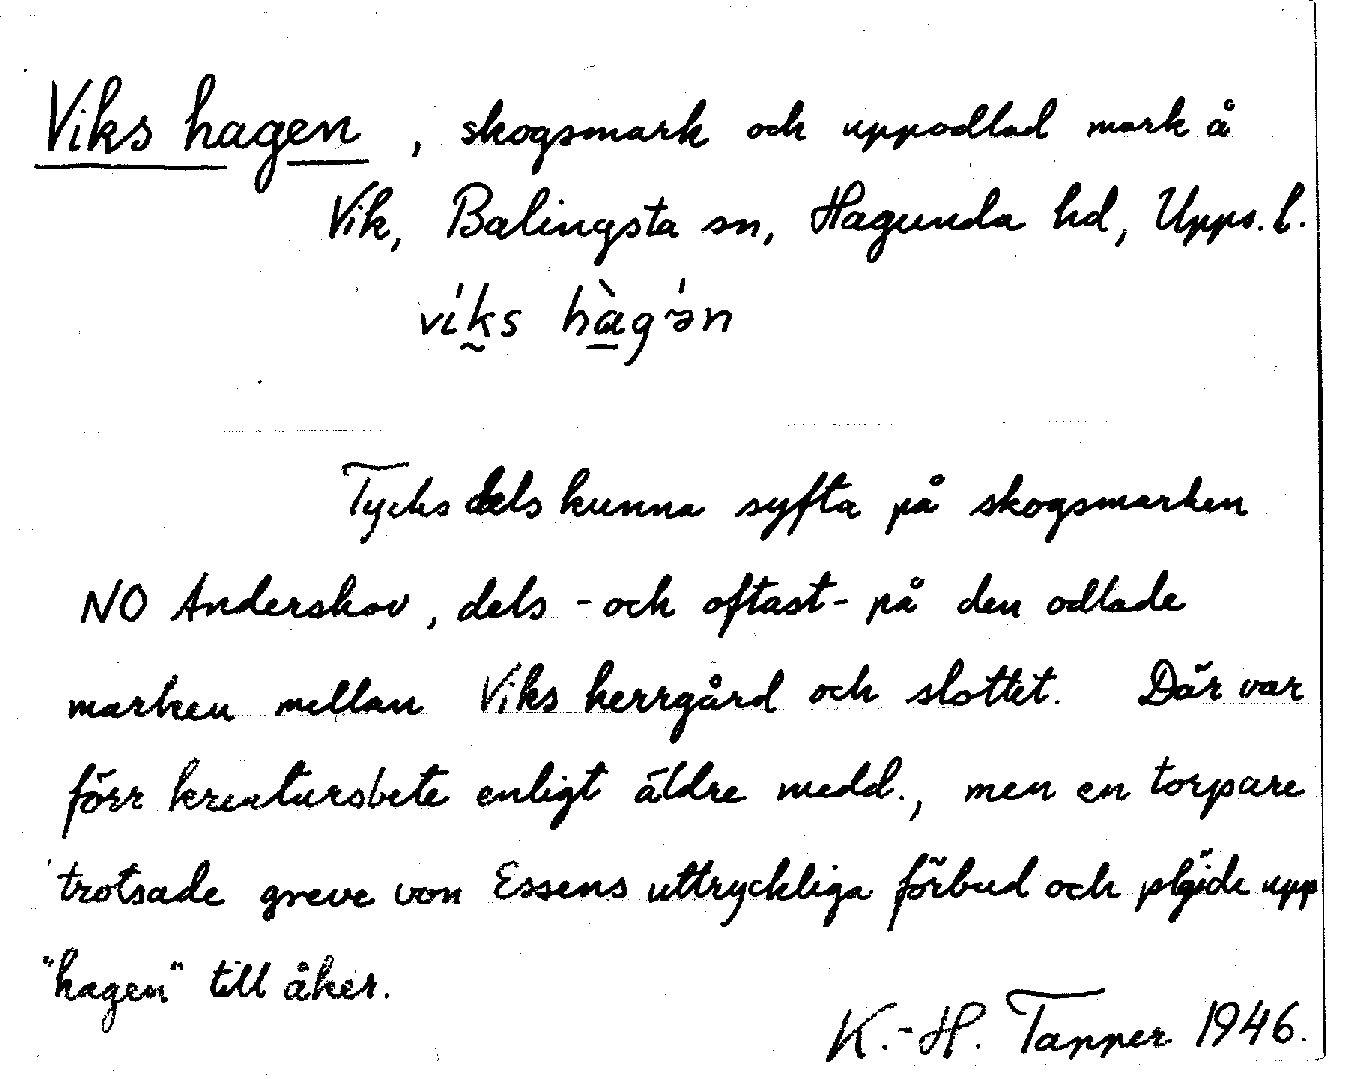 Viks hagen, skogsmark och uppodlad mark å
Vik, Balingsta sn, Hagunda hd, Upps. l.
víks hàg'ən
Tycks dels kunna syfta på skogsmarken
NO Anderskov, dels - och oftast - på den odlade
marken mellan Viks herrgård och slottet. Där var
förr kreatursbete enligt äldre medd., men en torpare
trotsade greve von Essens uttryckliga förbud och plöjde upp
"hagen" till åker.
K.-H. Tapper 1946.